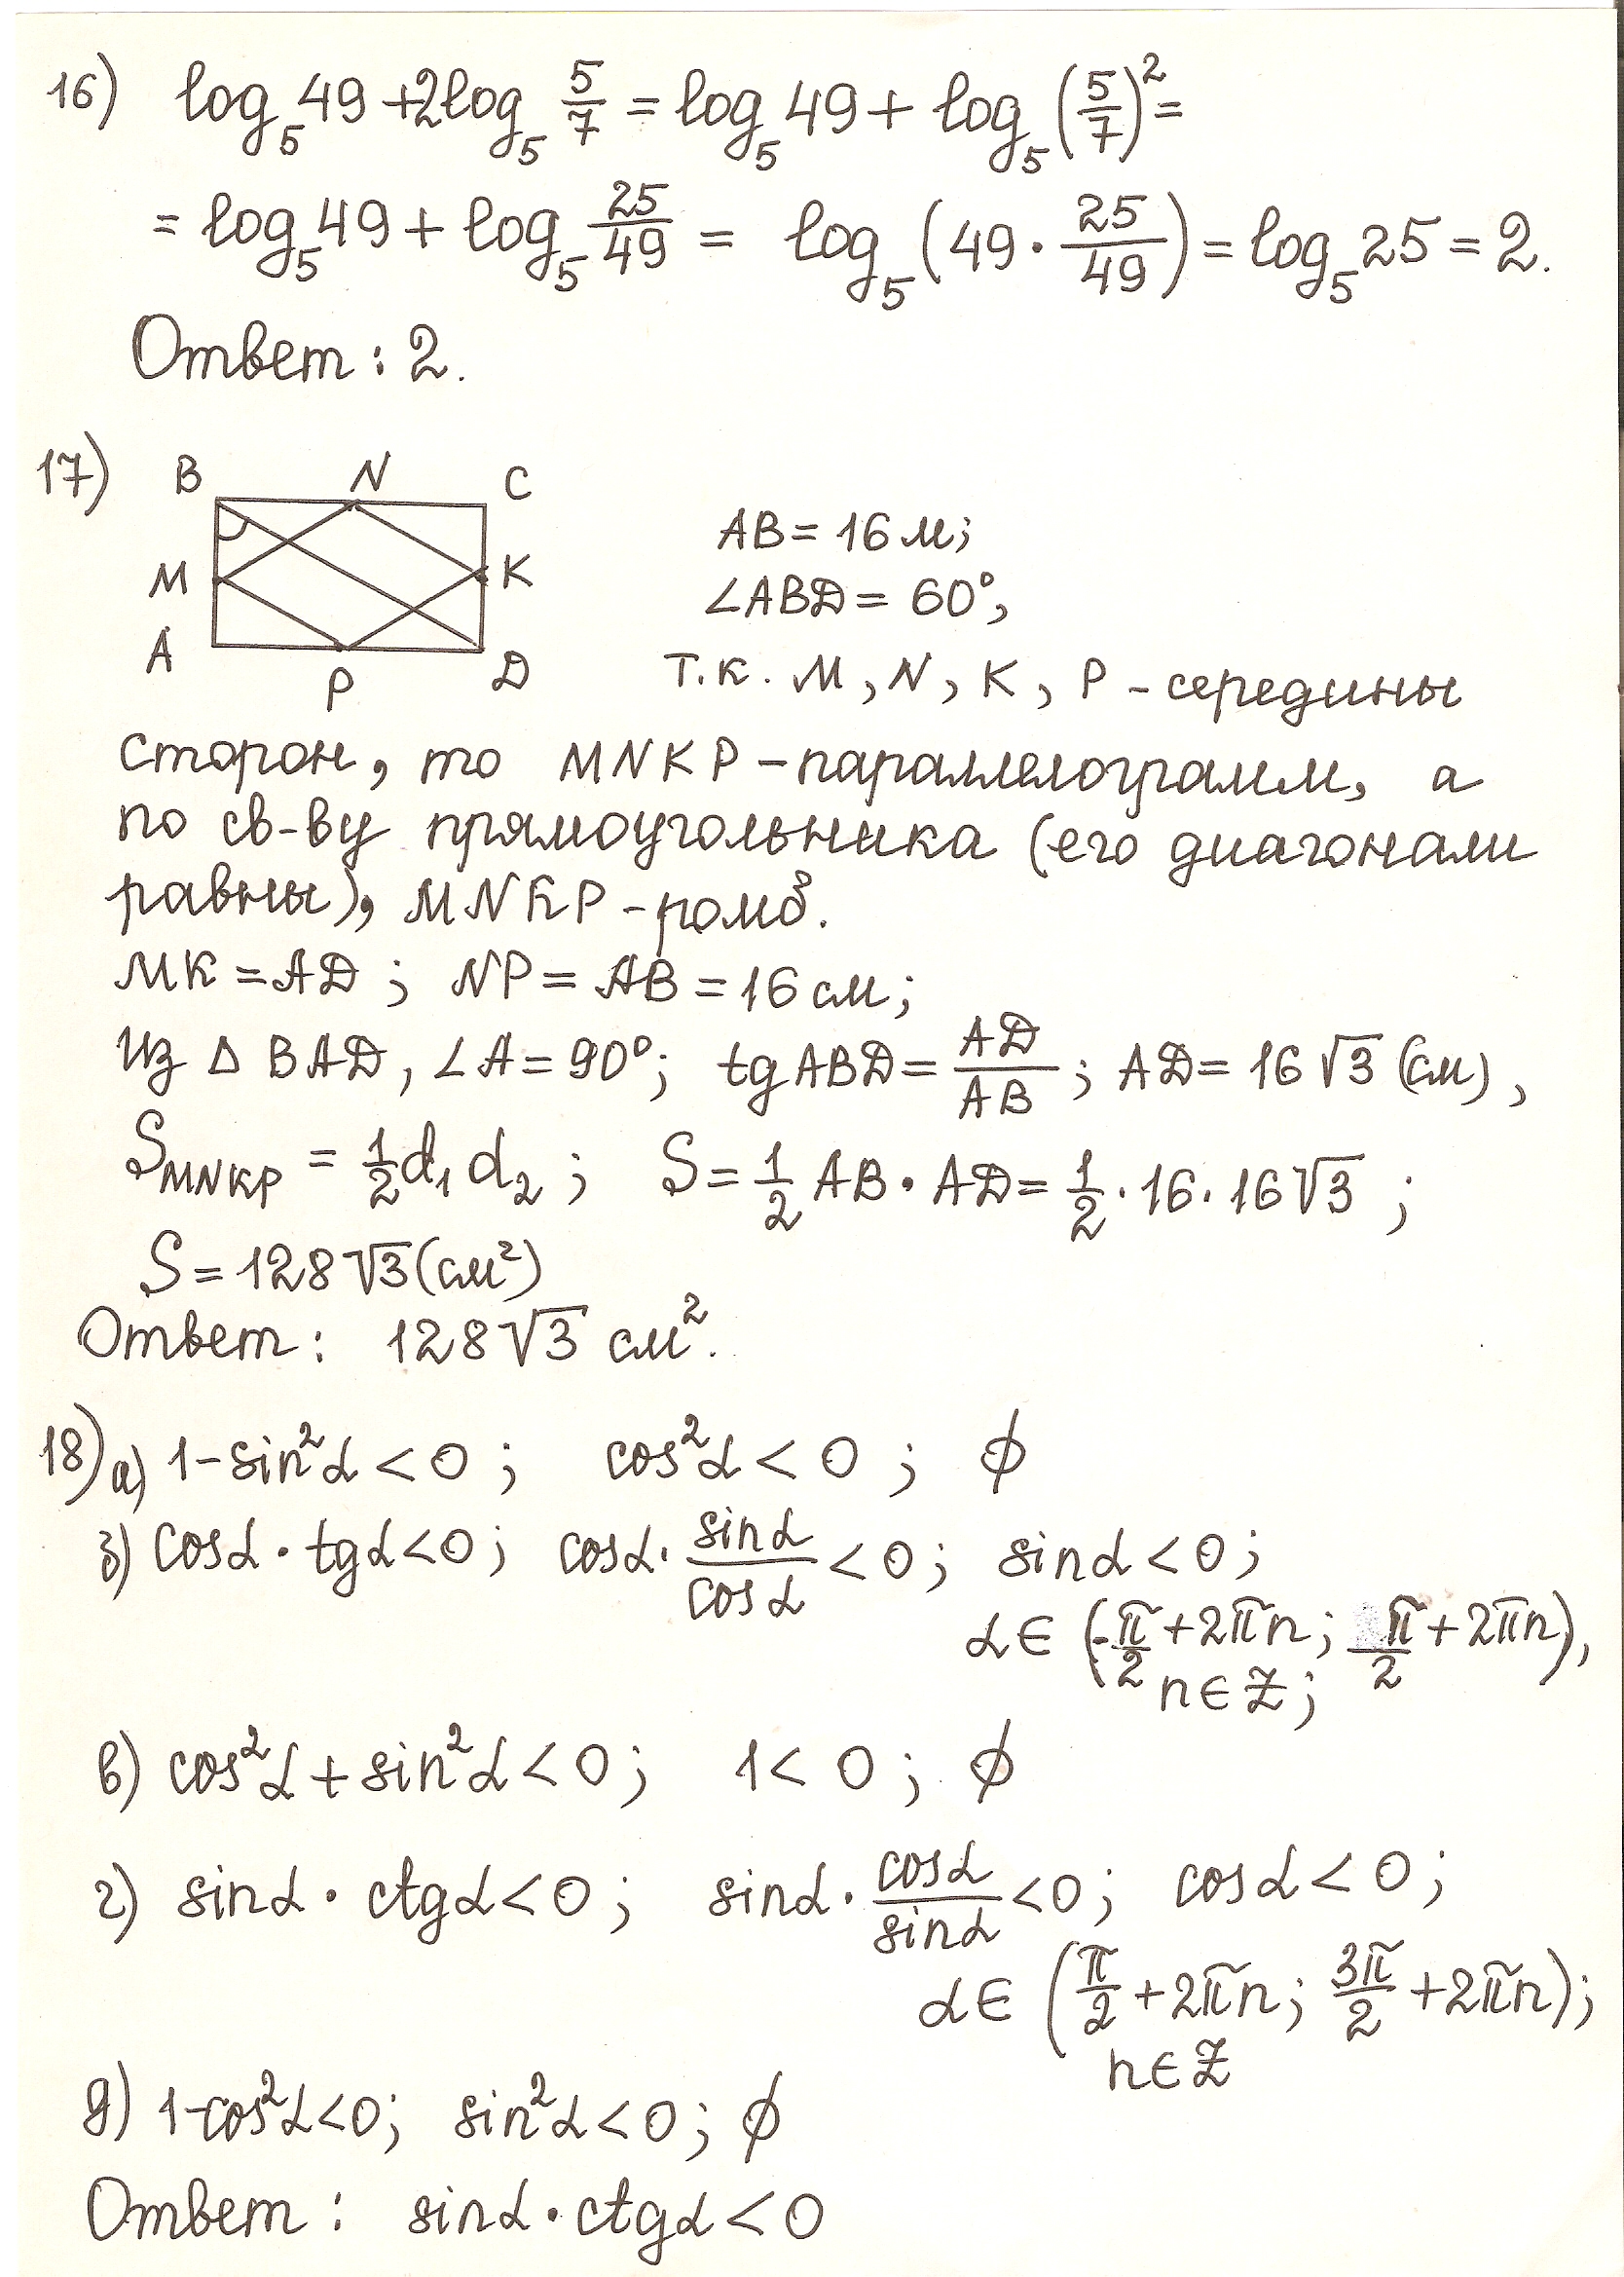 16) log₅49 + 2log₅ 5/7 = log₅49 + log₅(5/7)² =
= log₅49 + log₅ 25/49 = log₅(49 · 25/49) = log₅25 = 2.
Ответ : 2.
17) B N C
M K
A P D
AB = 16 м;
∠ABD = 60°,
Т.к. M, N, K, P – середины
сторон, то MNKP – параллелограмм, а
по св-ву прямоугольника (его диагонали
равны), MNKP – ромб.
MK = AD ; NP = AB = 16 см ;
Из Δ BAD, ∠A = 90°; tg ABD = AD/AB ; AD = 16√3 (см),
S_MNKP = 1/2 d₁ d₂ ; S = 1/2 AB · AD = 1/2 · 16 · 16√3 ;
S = 128√3 (см²)
Ответ : 128√3 см².
18) а) 1 – sin²α < 0 ; cos²α < 0 ; ∅
б) cosα · tgα < 0 ; cosα · sinα/cosα < 0 ; sinα < 0 ;
α ∈ (-π/2 + 2πn ; π/2 + 2πn),
n ∈ Z ;
в) cos²α + sin²α < 0 ; 1 < 0 ; ∅
г) sinα · ctgα < 0 ; sinα · cosα/sinα < 0 ; cosα < 0 ;
α ∈ (π/2 + 2πn ; 3π/2 + 2πn) ;
n ∈ Z
д) 1-cos²α < 0 ; sin²α < 0 ; ∅
Ответ : sinα · ctgα < 0